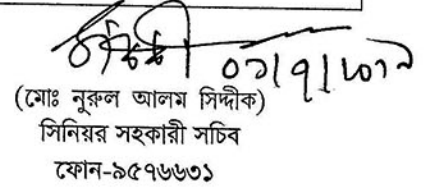 (মোঃ নুরুল আলম সিদ্দীক)
সিনিয়র সহকারী সচিব
ফোন-৯৫৭৬৬৩১